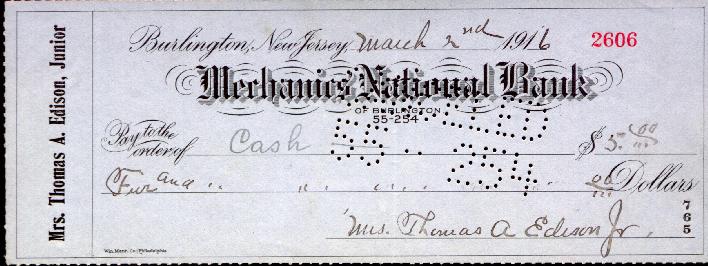 Mrs. Thomas A. Edison, Junior
Burlington, New Jersey, March 2nd 1916 2606
Mechanics National Bank
OF BURLINGTON
55-254
Pay to the order of Cash $ 5.00
and 00 Dollars
Mrs. Thomas A Edison Jr.
765
Wm. Mann Co. Philadelphia
55-254